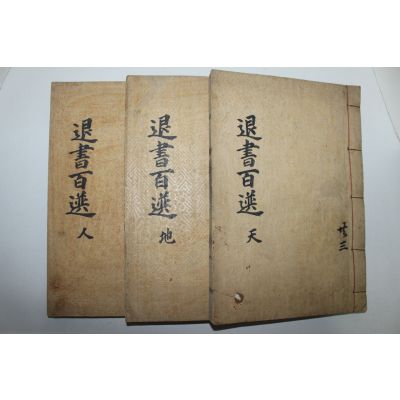 退書百選
天
共三
退書百選
地
退書百選
人